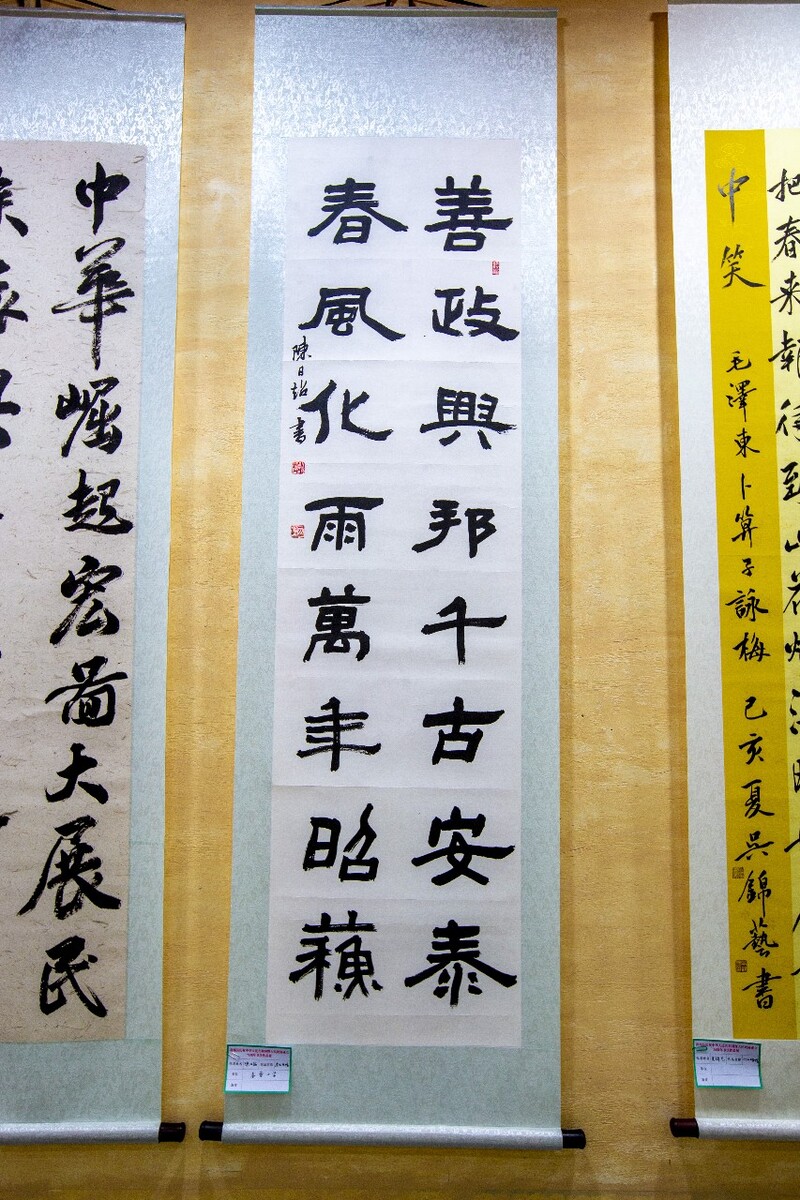 把春来報待到山花爛
中笑 毛澤東卜算子詠梅 己亥夏吳錦藝書
善政興邦千古安泰
春風化雨萬年昭蘓
陳日 書
中華崛起宏圖大展民
族